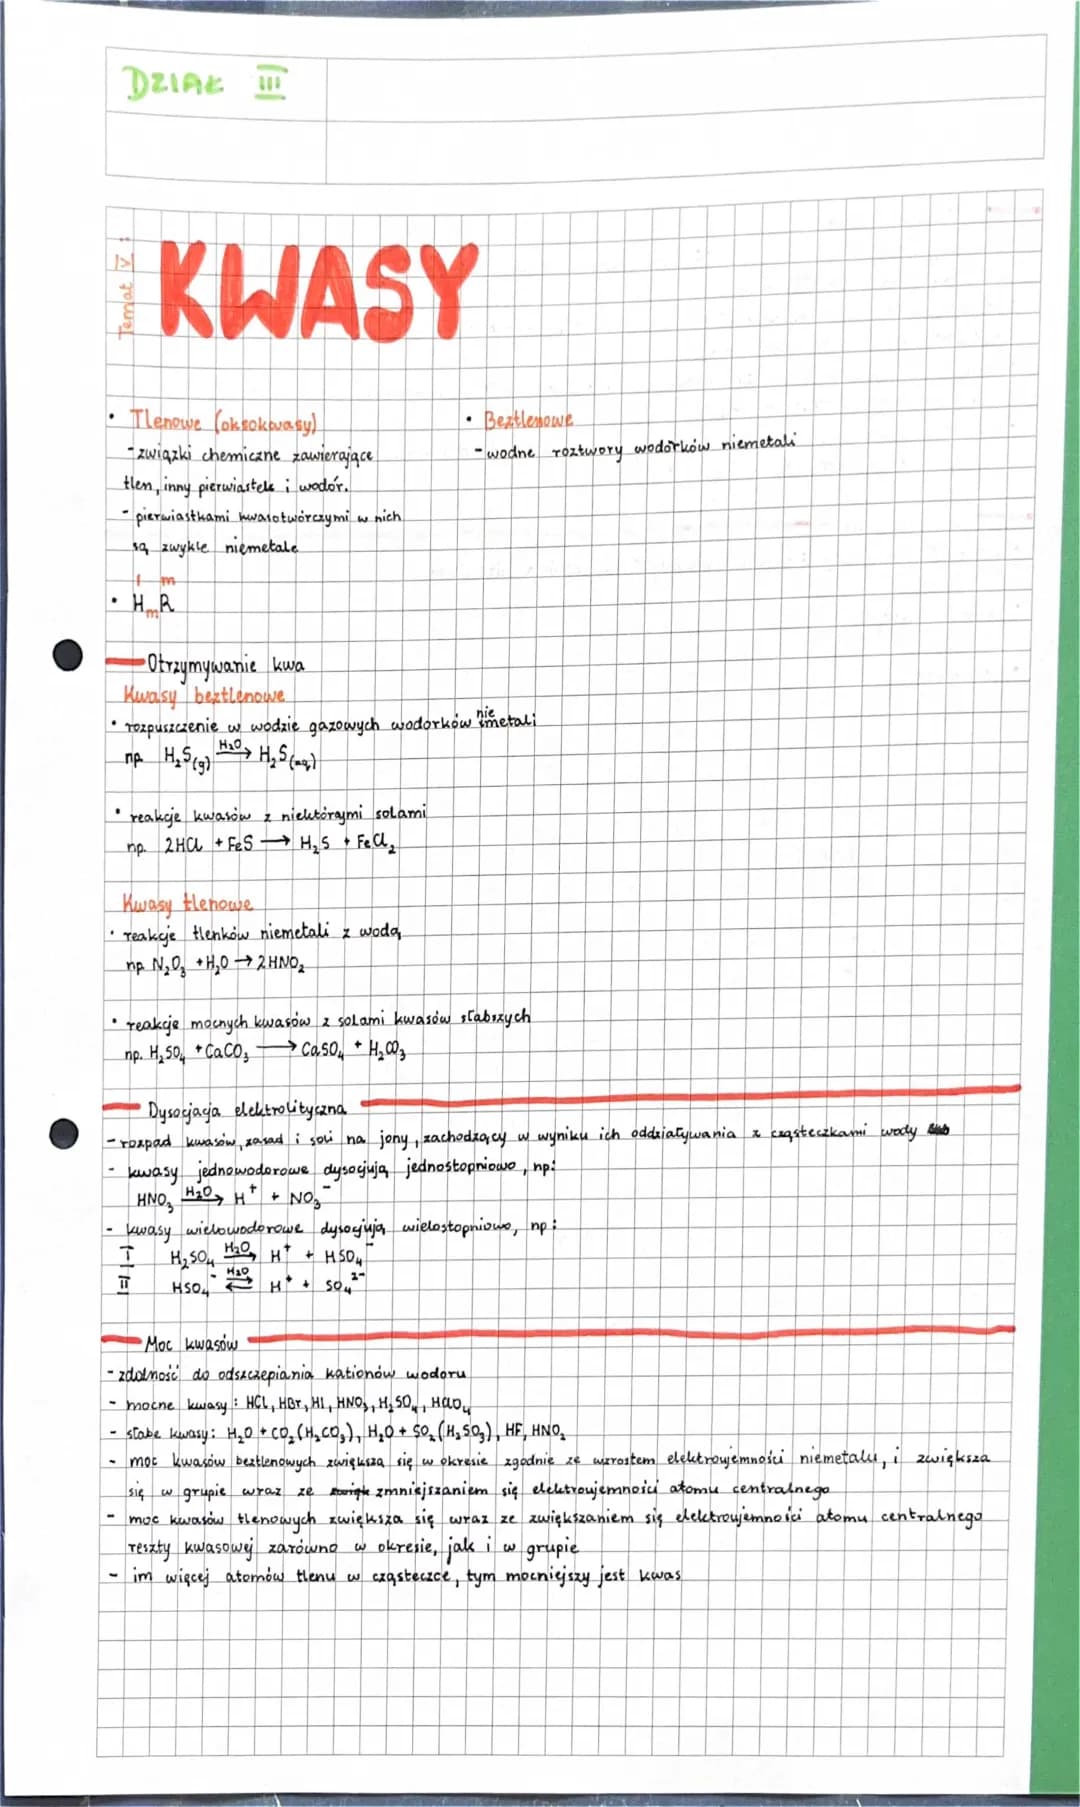 DZIAŁ III
Temat V:
KWASY
• Tlenowe (oksokwasy)
- związki chemiczne zawierające
tlen, inny pierwiastek i wodór.
- pierwiastkami kwasotwórczymi w nich
są zwykle niemetale
• Beztlenowe
- wodne roztwory wodorków niemetali
I m
• HₘR
Otrzymywanie kwa
Kwasy beztlenowe
• rozpuszczenie w wodzie gazowych wodorków niemetali
np. H₂S(g) H₂O→ H₂S(aq)
• reakcje kwasów z niektórymi solami
np. 2HCl + FeS → H₂S + FeCl₂
Kwasy tlenowe
• reakcje tlenków niemetali z wodą
np. N₂O₃ + H₂O → 2HNO₂
• reakcje mocnych kwasów z solami kwasów słabszych
np. H₂SO₄ + CaCO₃ → CaSO₄ + H₂CO₃
Dysocjacja elektrolityczna
- rozpad kwasów, zasad i soli na jony, zachodzący w wyniku ich oddziaływania z cząsteczkami wody
- kwasy jednowodorowe dysocjują jednostopniowo, np:
HNO₃ H₂O→ H⁺ + NO₃⁻
- kwasy wielowodorowe dysocjują wielostopniowo, np:
I H₂SO₄ H₂O→ H⁺ + HSO₄⁻
II HSO₄⁻ H₂O⇄ H⁺ + SO₄²⁻
Moc kwasów
- zdolność do odszczepiania kationów wodoru
- mocne kwasy: HCl, HBr, HI, HNO₃, H₂SO₄, HClO₄
- słabe kwasy: H₂O + CO₂ (H₂CO₃), H₂O + SO₂ (H₂SO₃), HF, HNO₂
- moc kwasów beztlenowych zwiększa się w okresie zgodnie ze wzrostem elektroujemności niemetalu, i zwiększa
się w grupie wraz ze zmniejszaniem się elektroujemności atomu centralnego
- moc kwasów tlenowych zwiększa się wraz ze zwiększaniem się elektroujemności atomu centralnego
reszty kwasowej zarówno w okresie, jak i w grupie
- im więcej atomów tlenu w cząsteczce, tym mocniejszy jest kwas